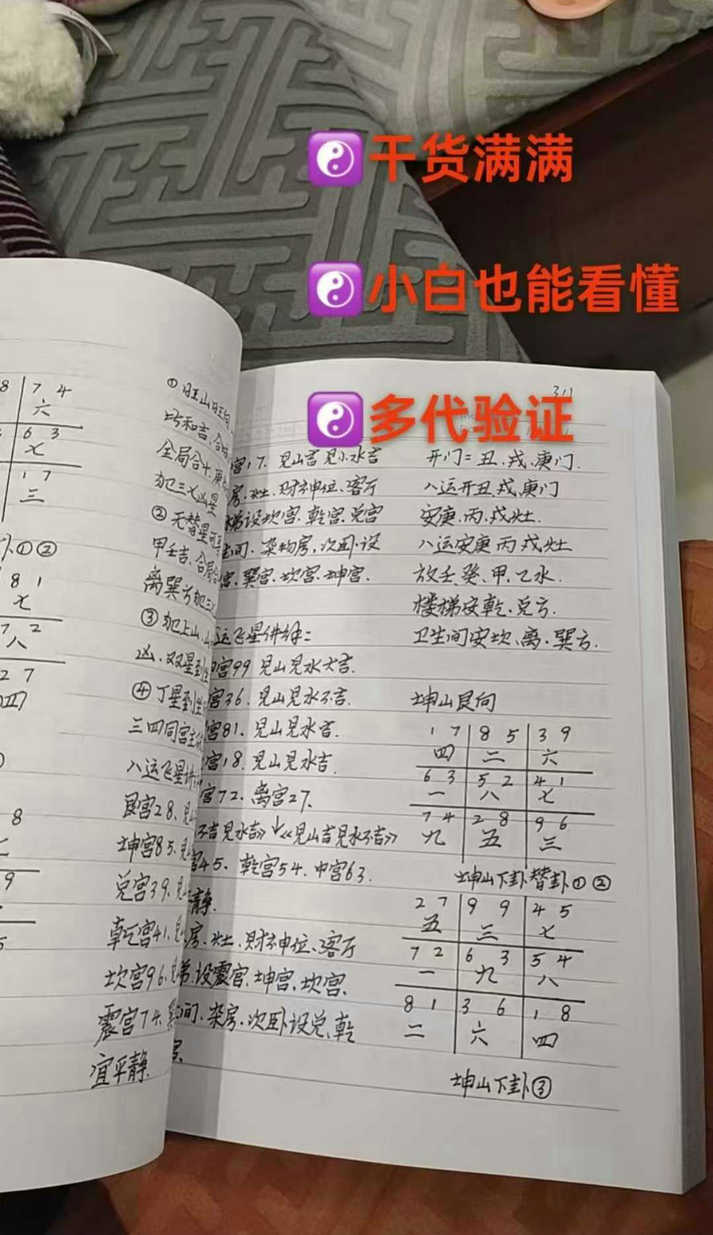 干货满满
小白也能看懂
多代验证
311
8 7 4
六
6 3
七
1 7
三
卦①②
8 1
七
7 2
八
2 7
四
8
9
5
①旺山旺向
巧和吉、合
全局合十、
犯三七凶星
②无替星可
甲壬吉、合局
离巽方犯三
③犯上山、
凶、双星到
④丁星到坐
三四同宫主
八运飞星讲
艮宫28、见
坤宫85、见
兑宫39、见
乾宫41、
坎宫96、见
震宫74、
宜平静.
宫17、见山吉见水吉
房、灶、财神位、客厅
梯设坎宫、乾宫、兑宫
间、杂物房、次卧设
宫、巽宫、坎宫、坤宫.
运飞星讲解:
宫99 见山见水大吉.
宫36、见山见水不吉.
宫81、见山见水吉.
宫18、见山见水吉.
宫72、离宫27、
不吉见水吉》↓《见山吉见水不吉》
宫45、乾宫54、中宫63.
静.
房、灶、财神位、客厅
梯、设震宫、坤宫、坎宫、
间、杂房、次卧设兑、乾
宫.
开门=丑、戌、庚门.
八运开丑、戌、庚门
安庚、丙、戌灶.
八运安庚丙戌灶
放壬癸、甲、乙水.
楼梯安乾、兑方.
卫生间安坎、离、巽方.
坤山艮向
1 7 8 5 3 9
四 二 六
6 3 5 2 4 1
一 八 七
7 4 2 8 9 6
九 五 三
坤山下卦替卦①②
2 7 9 9 4 5
五 三 七
7 2 6 3 5 4
一 九 八
8 1 3 6 1 8
二 六 四
坤山下卦③